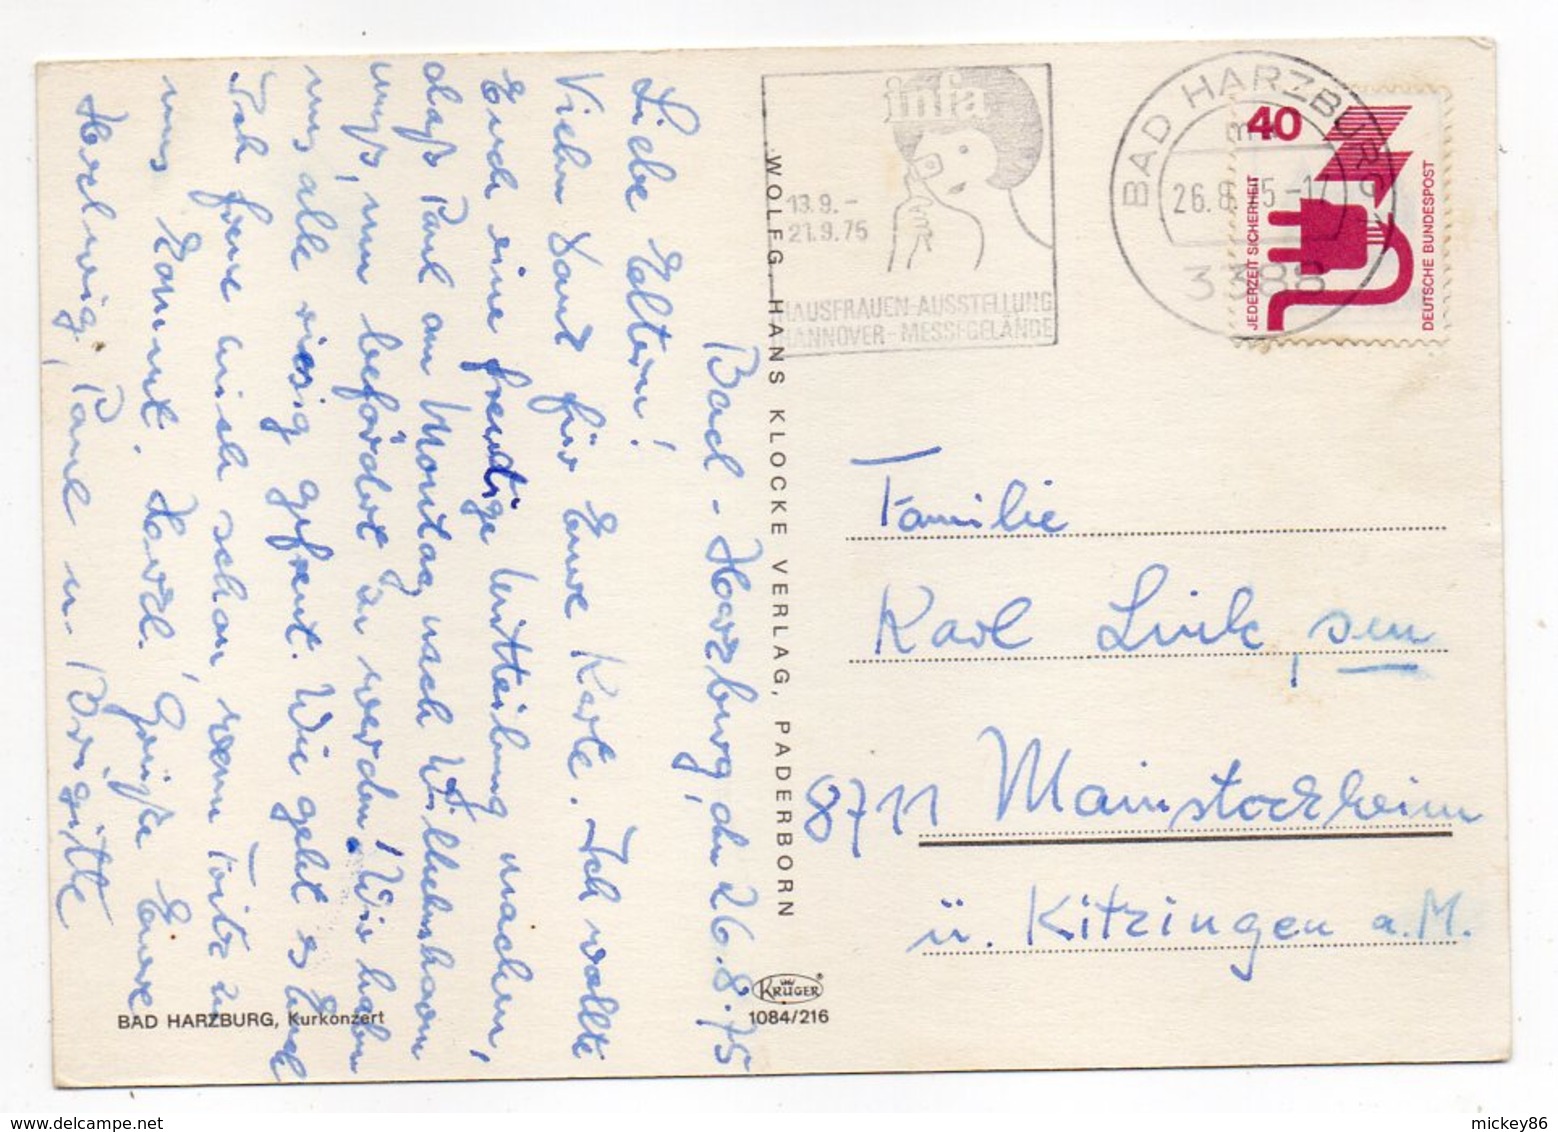 Bad-Harzburg, den 26.8.75
Liebe Eltern!
Vielen Dank für Eure Karte. Ich wollte
Euch eine freudige Mitteilung machen,
daß Paul am Montag nach Wilhelmshaven
muß, um befördert zu werden! Wir haben
uns alle riesig gefreut. Wie geht es Euch
Ich freue mich schon, wenn Fritz zu
uns kommt. Herzl. Grüße Eure
Hedwig, Paul u. Brigitte
BAD HARZBURG, Kurkonzert
WOLFG. HANS KLOCKE VERLAG, PADERBORN
KRÜGER
1084/216
infa
13.9.-
21.9.75
HAUSFRAUEN-AUSSTELLUNG
HANNOVER-MESSEGELÄNDE
BAD HARZBURG 1
26.8.75-1
3388
40
JEDERZEIT SICHERHEIT
DEUTSCHE BUNDESPOST
Familie
Karl Link, sen
8711 Mainstockheim
ü. Kitzingen a.M.
mickey86